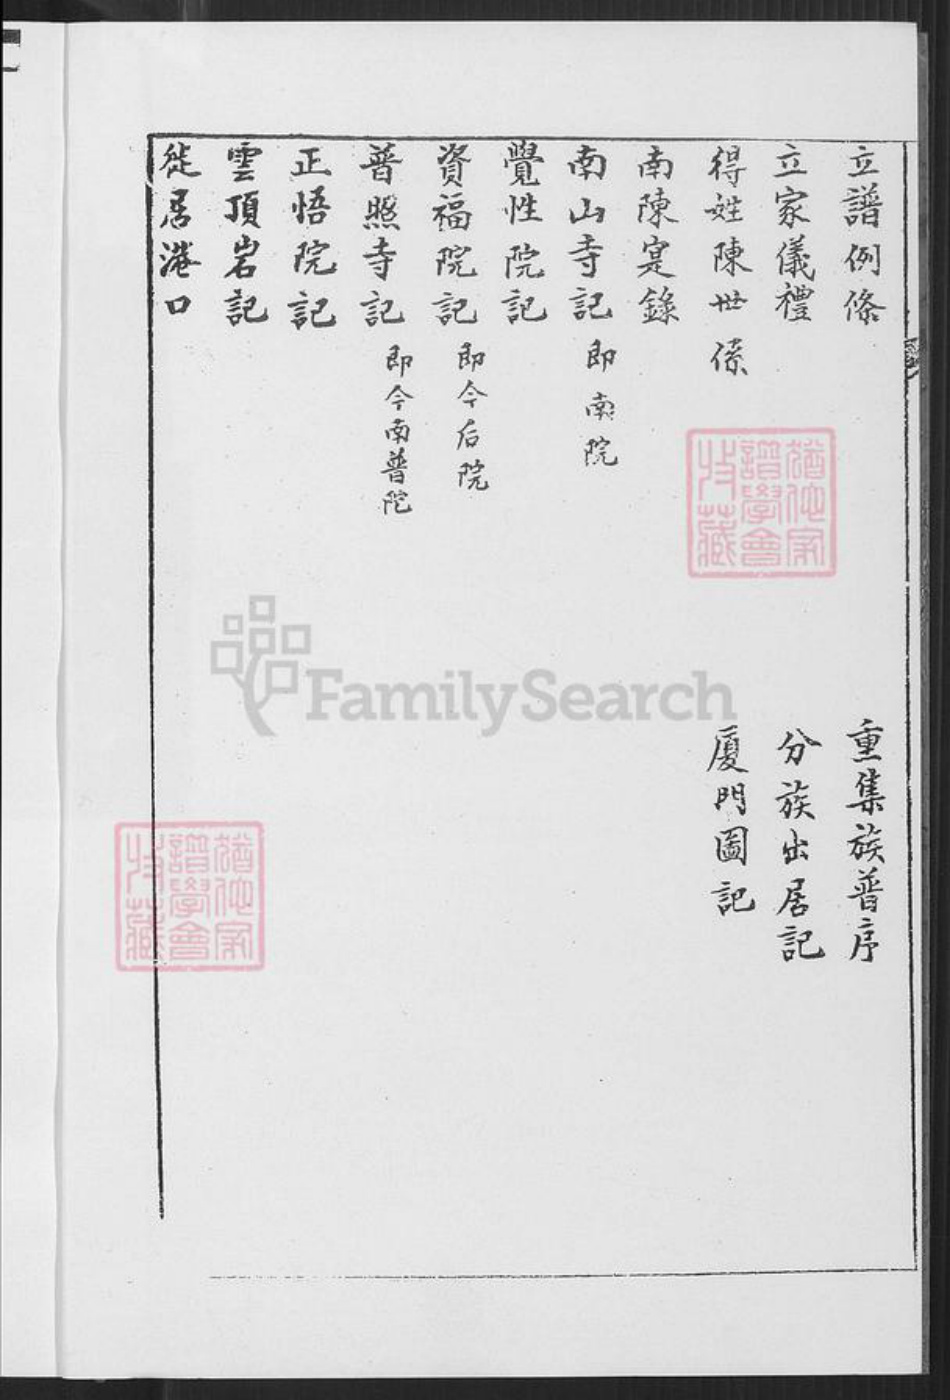 立譜例條
立家儀禮
得姓陳世係
南陳寔錄
南山寺記 即南院
覺性院記
資福院記 即今后院
普照寺記 即今南普陀
正悟院記
雲頂岩記
徙居港口
重集族普序
分族出居記
廈門圖記
FamilySearch